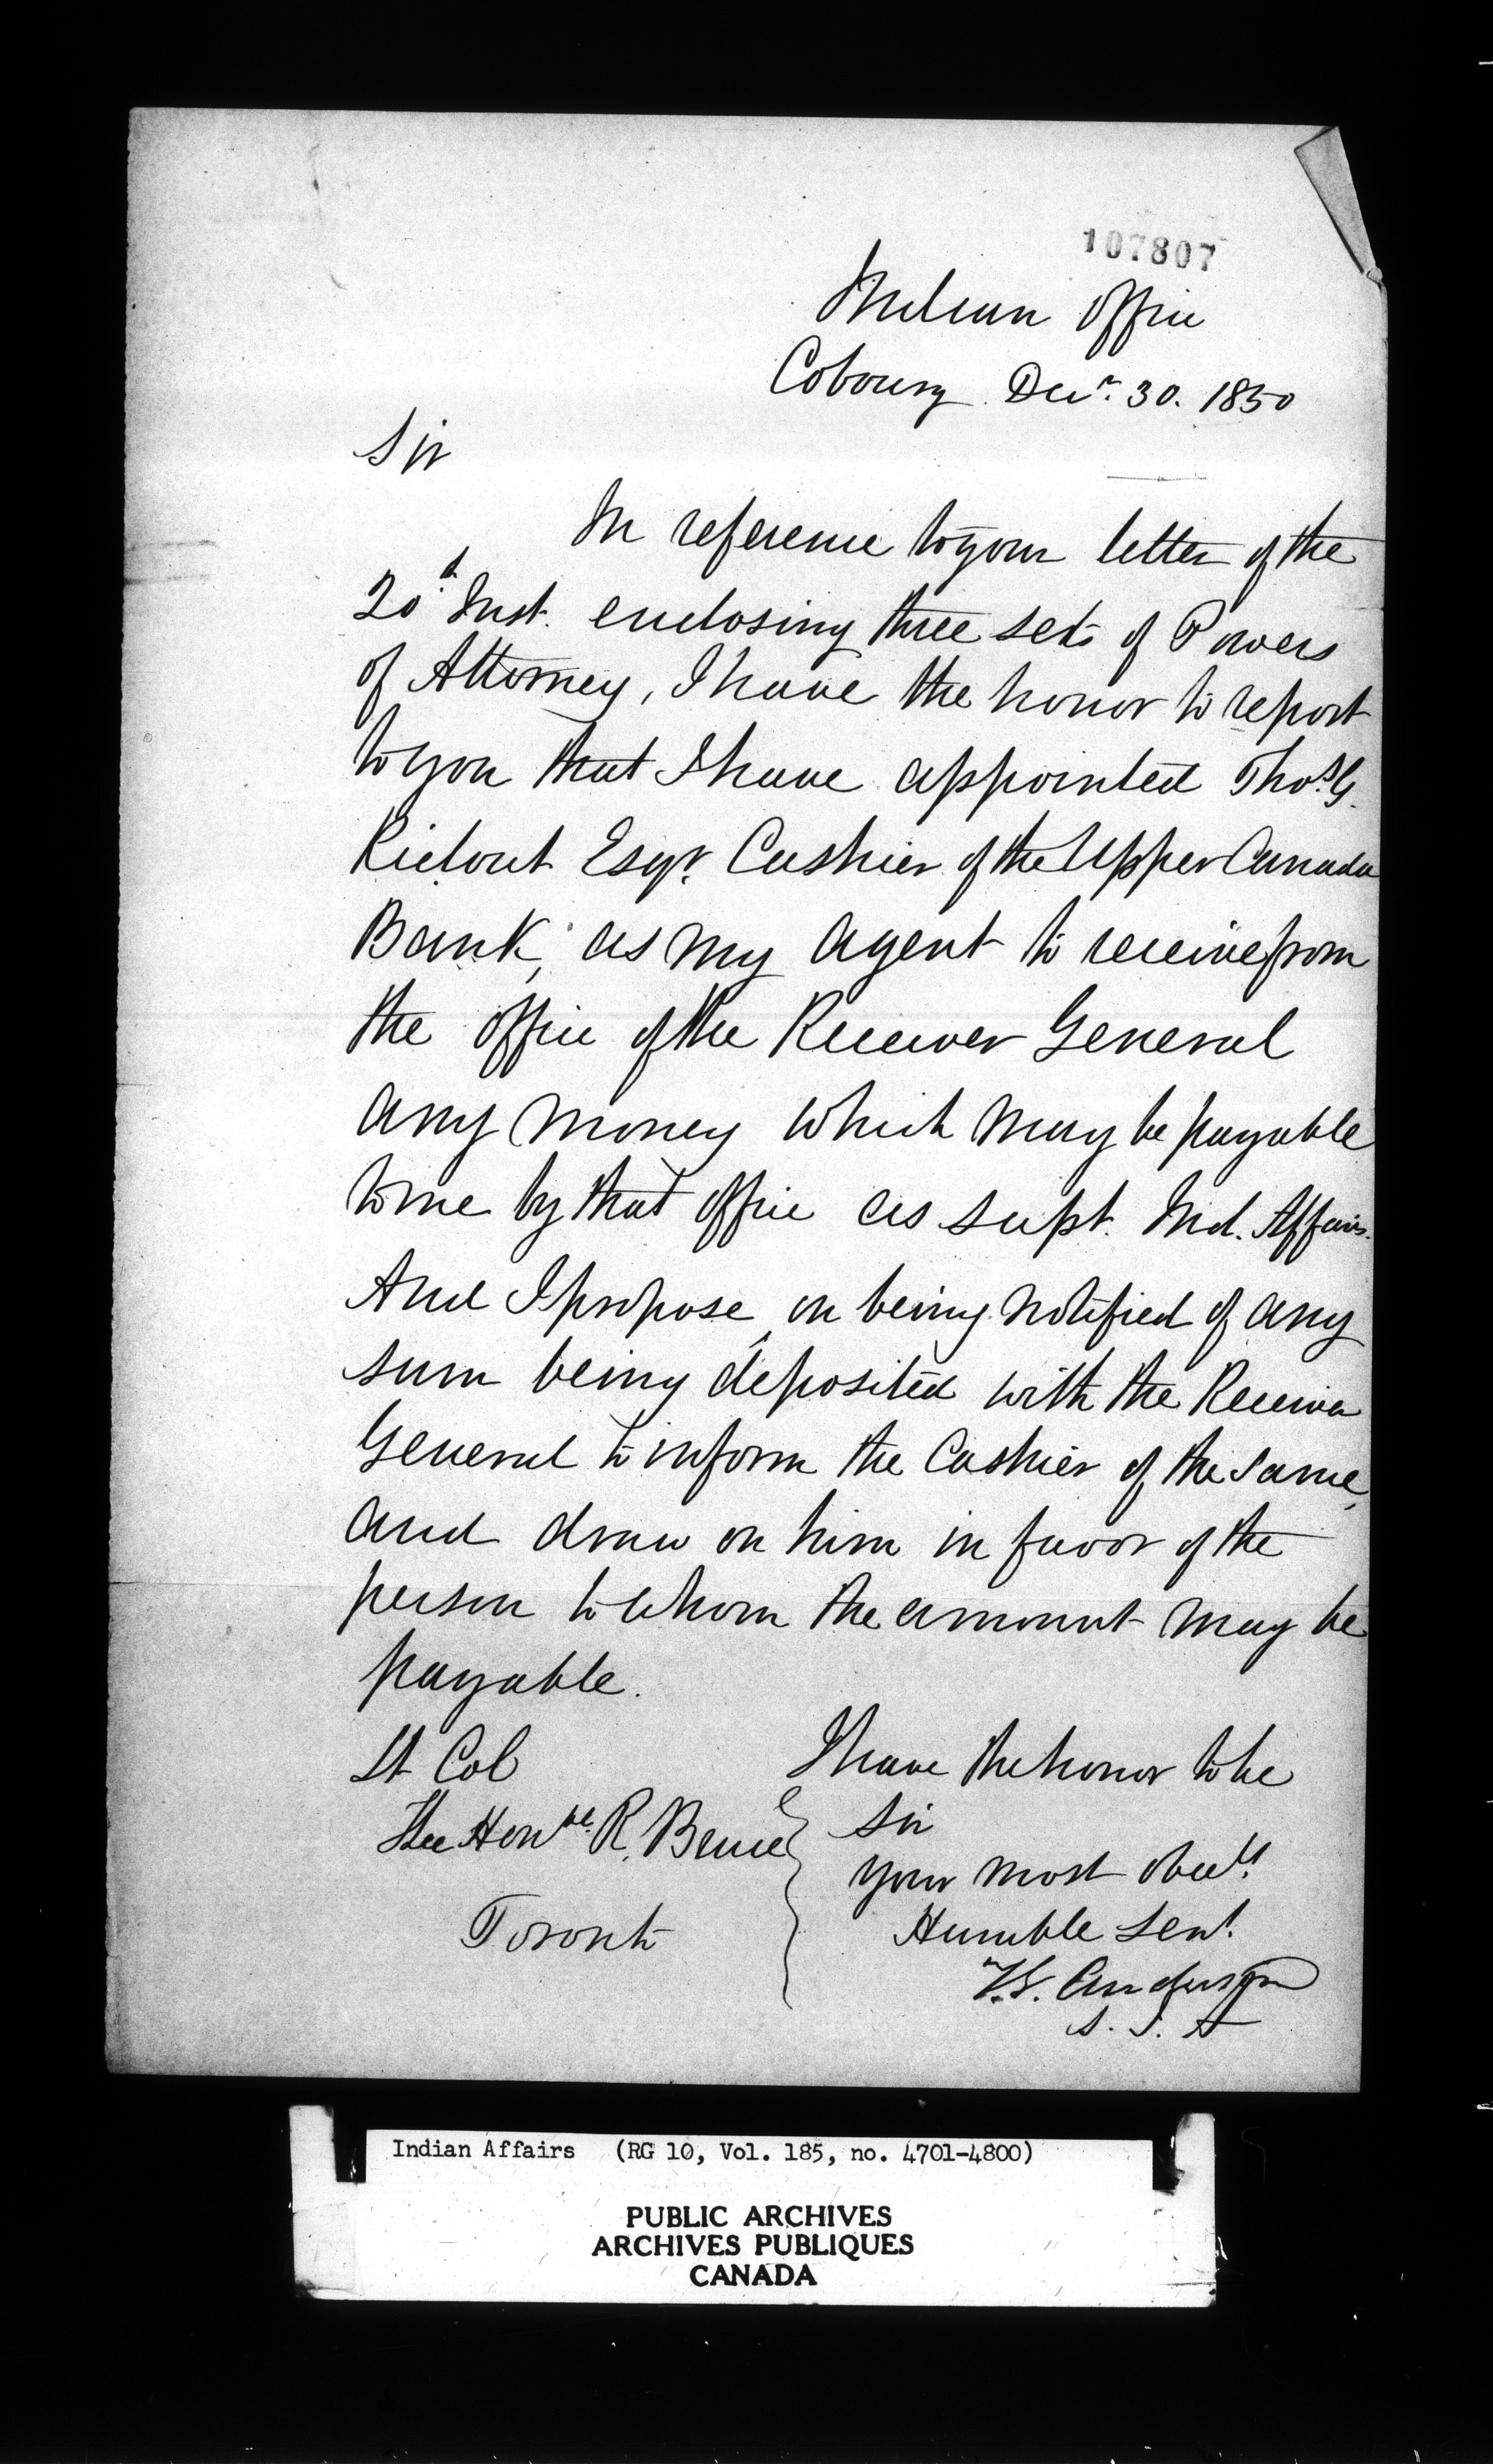 107807
Indian Office
Cobourg Decr. 30. 1850
Sir
In reference to your letter of the
20th Inst. enclosing three sets of Powers
of Attorney, I have the honor to report
to you that I have appointed Thos. G.
Ridout Esqr. Cashier of the Upper Canada
Bank, as my agent to receive from
the office of the Receiver General
any money which may be payable
to me by that office as Supt. Ind. Affairs.
And I propose, on being notified of any
sum being deposited with the Receiver
General to inform the Cashier of the same,
and draw on him in favor of the
person to whom the amount may be
payable.
I have the honor to be
Sir
your most obedt.
Humble Servt.
T.G. Anderson
S. I. A
Lt Col
The Honble. R. Bruce
Toronto
Indian Affairs (RG 10, Vol. 185, no. 4701-4800)
PUBLIC ARCHIVES
ARCHIVES PUBLIQUES
CANADA